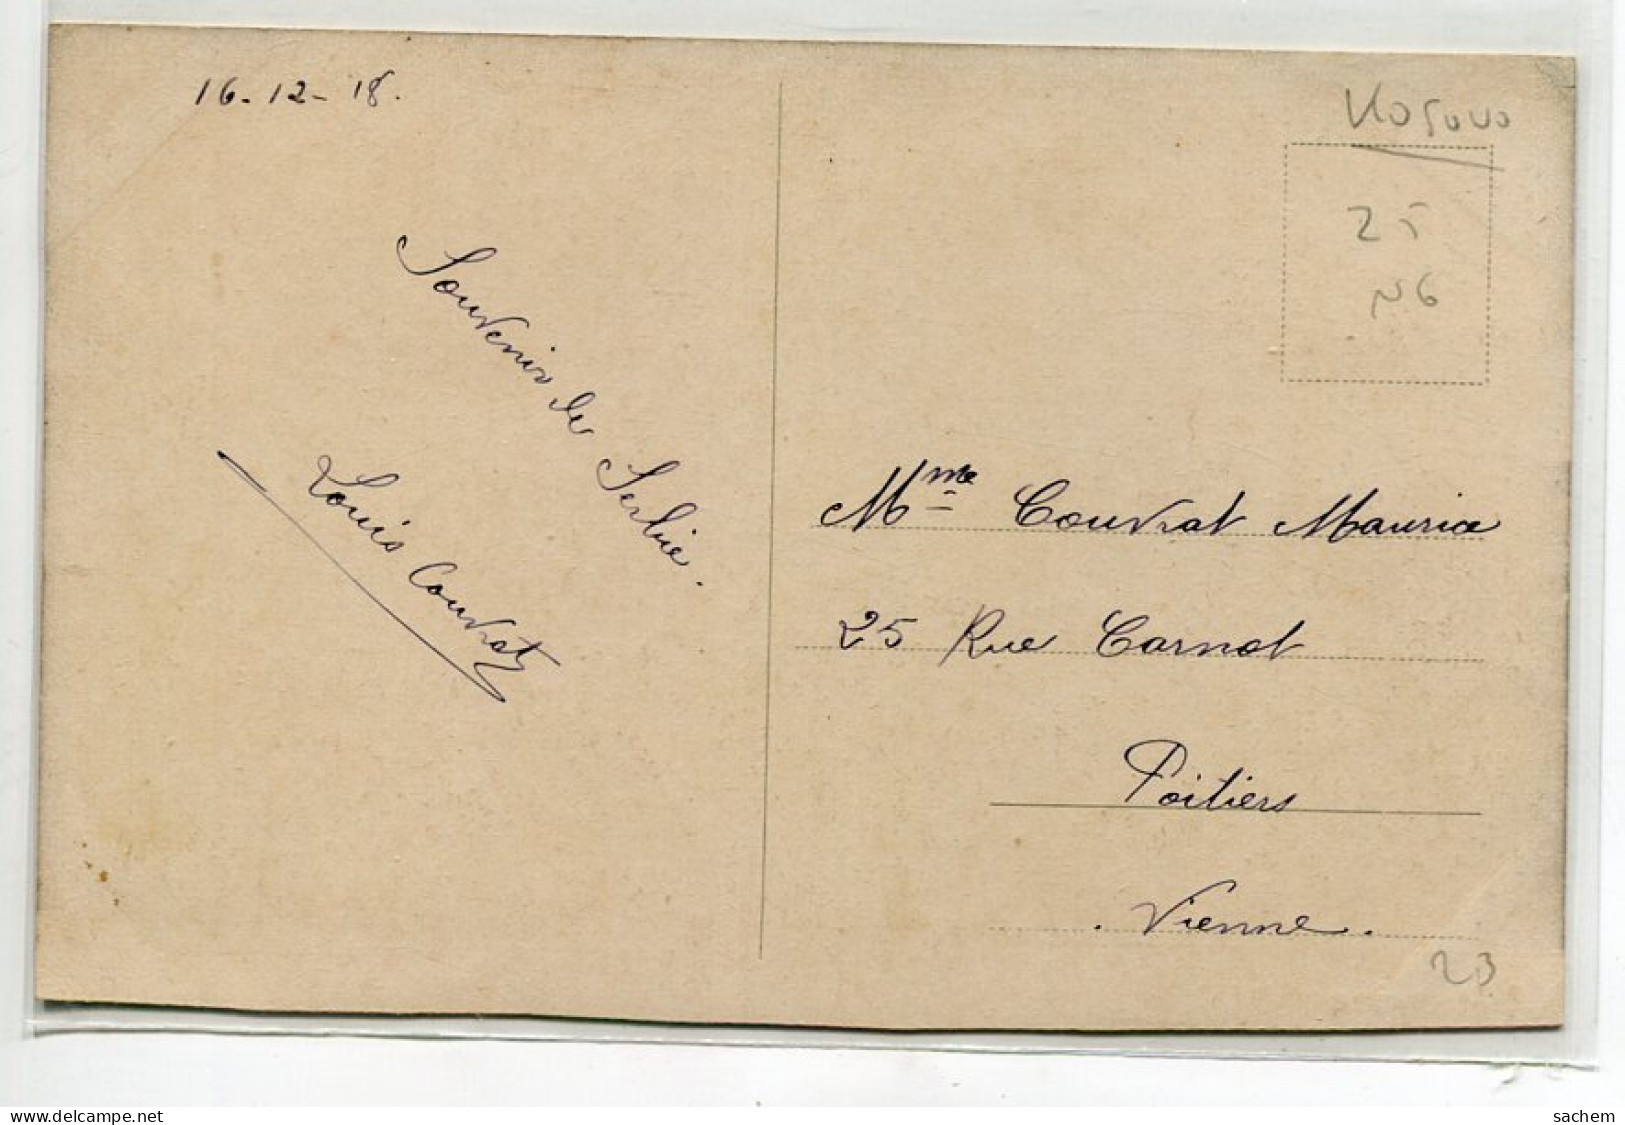 16-12-18.
Souvenir de Serbie.
Louis Couvrat
Kosovo
25
N6
Mme Couvrat Maurice
25 Rue Carnot
Poitiers
. Vienne .
23
www.delcampe.net
sachem